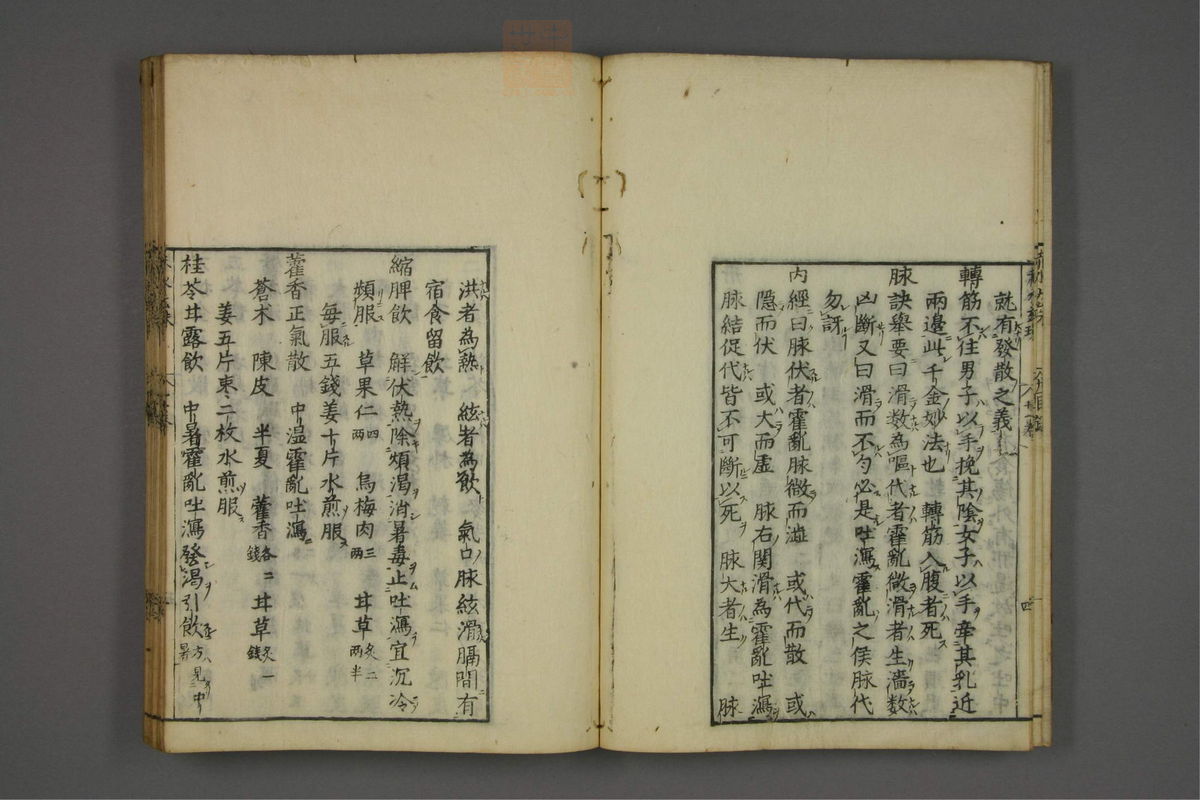 就有發散之義
轉筋不住男子以手挽其陰女子以手牽其乳近
兩邊此千金妙法也　轉筋入腹者死
脉訣舉要曰滑数為嘔代者霍亂微滑者生濇数
凶断又曰滑而不勻必是吐瀉霍亂之候脉代
勿訝
内經曰脉伏者霍亂脉微而澁　或代而散　或
隱而伏　或大而虚　脉右関滑為霍亂吐瀉
脉結促代皆不可断以死　脉大者生　脉
洪者為熱　絃者為飲　氣口脉絃滑膈間有
宿食留飲
縮脾飲　解伏熱除煩渇消暑毒止吐瀉宜沉冷
頻服　草果仁四兩　烏梅肉三兩　甘草炙二兩半
毎服五錢姜十片水煎服
藿香正氣散　中温霍亂吐瀉
蒼术　陳皮　半夏　藿香各二錢　甘草炙一錢
姜五片枣二枚水煎服
桂苓甘露飲　中暑霍亂吐瀉發渇引飲方見中暑